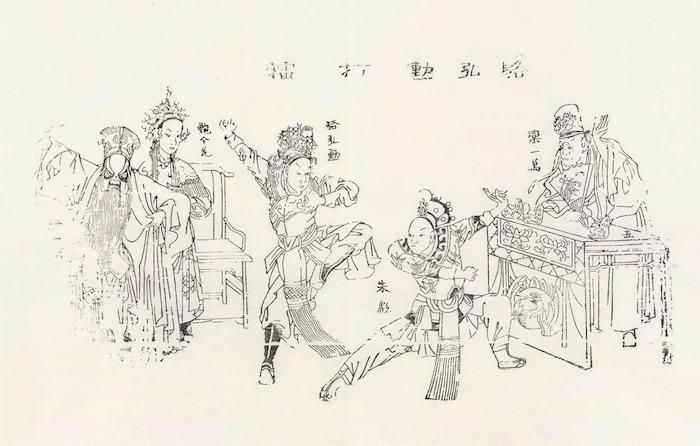 駱弘勳打擂
欒一萬
駱弘勳
鮑今花
朱彪
五